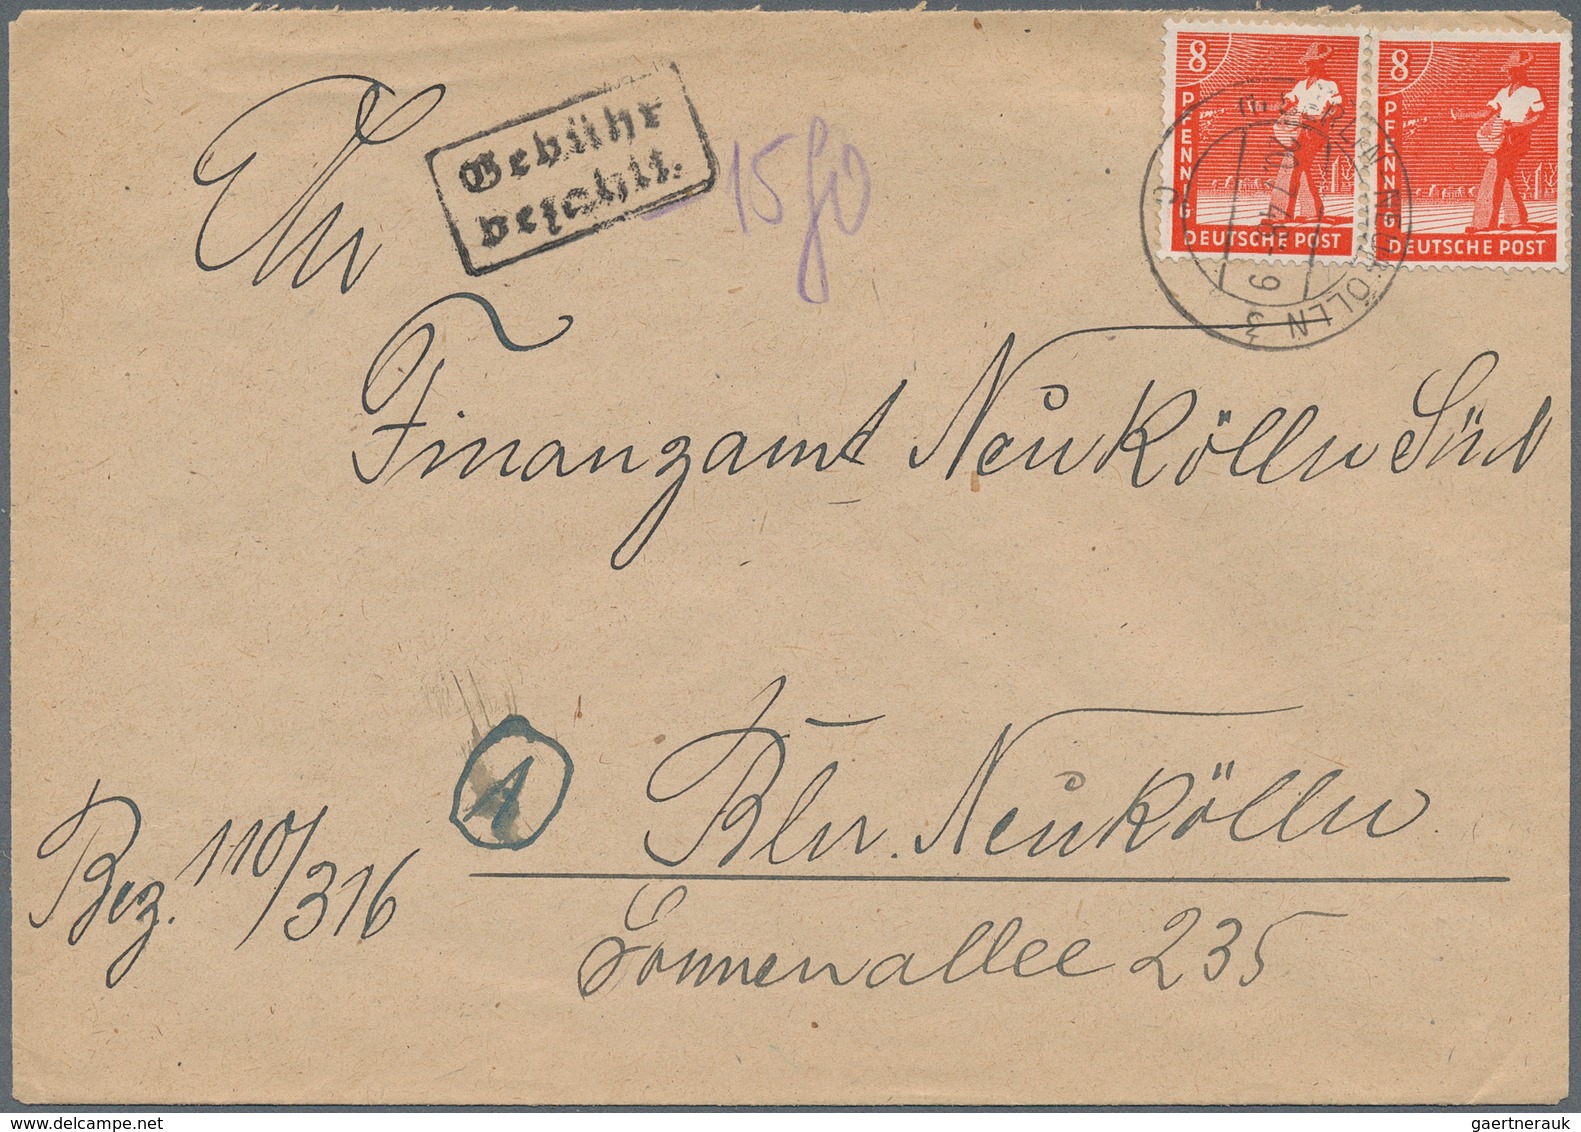 An
Gebühr
bezahlt.
15
8
PFENNIG
DEUTSCHE POST
8
PFENNIG
DEUTSCHE POST
BERLIN-NEUKÖLLN 3
Finanzamt Neukölln Süd
A
Bln. Neukölln
Bez. 110/316
Sonnenallee 235
gaertnerauk@delcampe.net